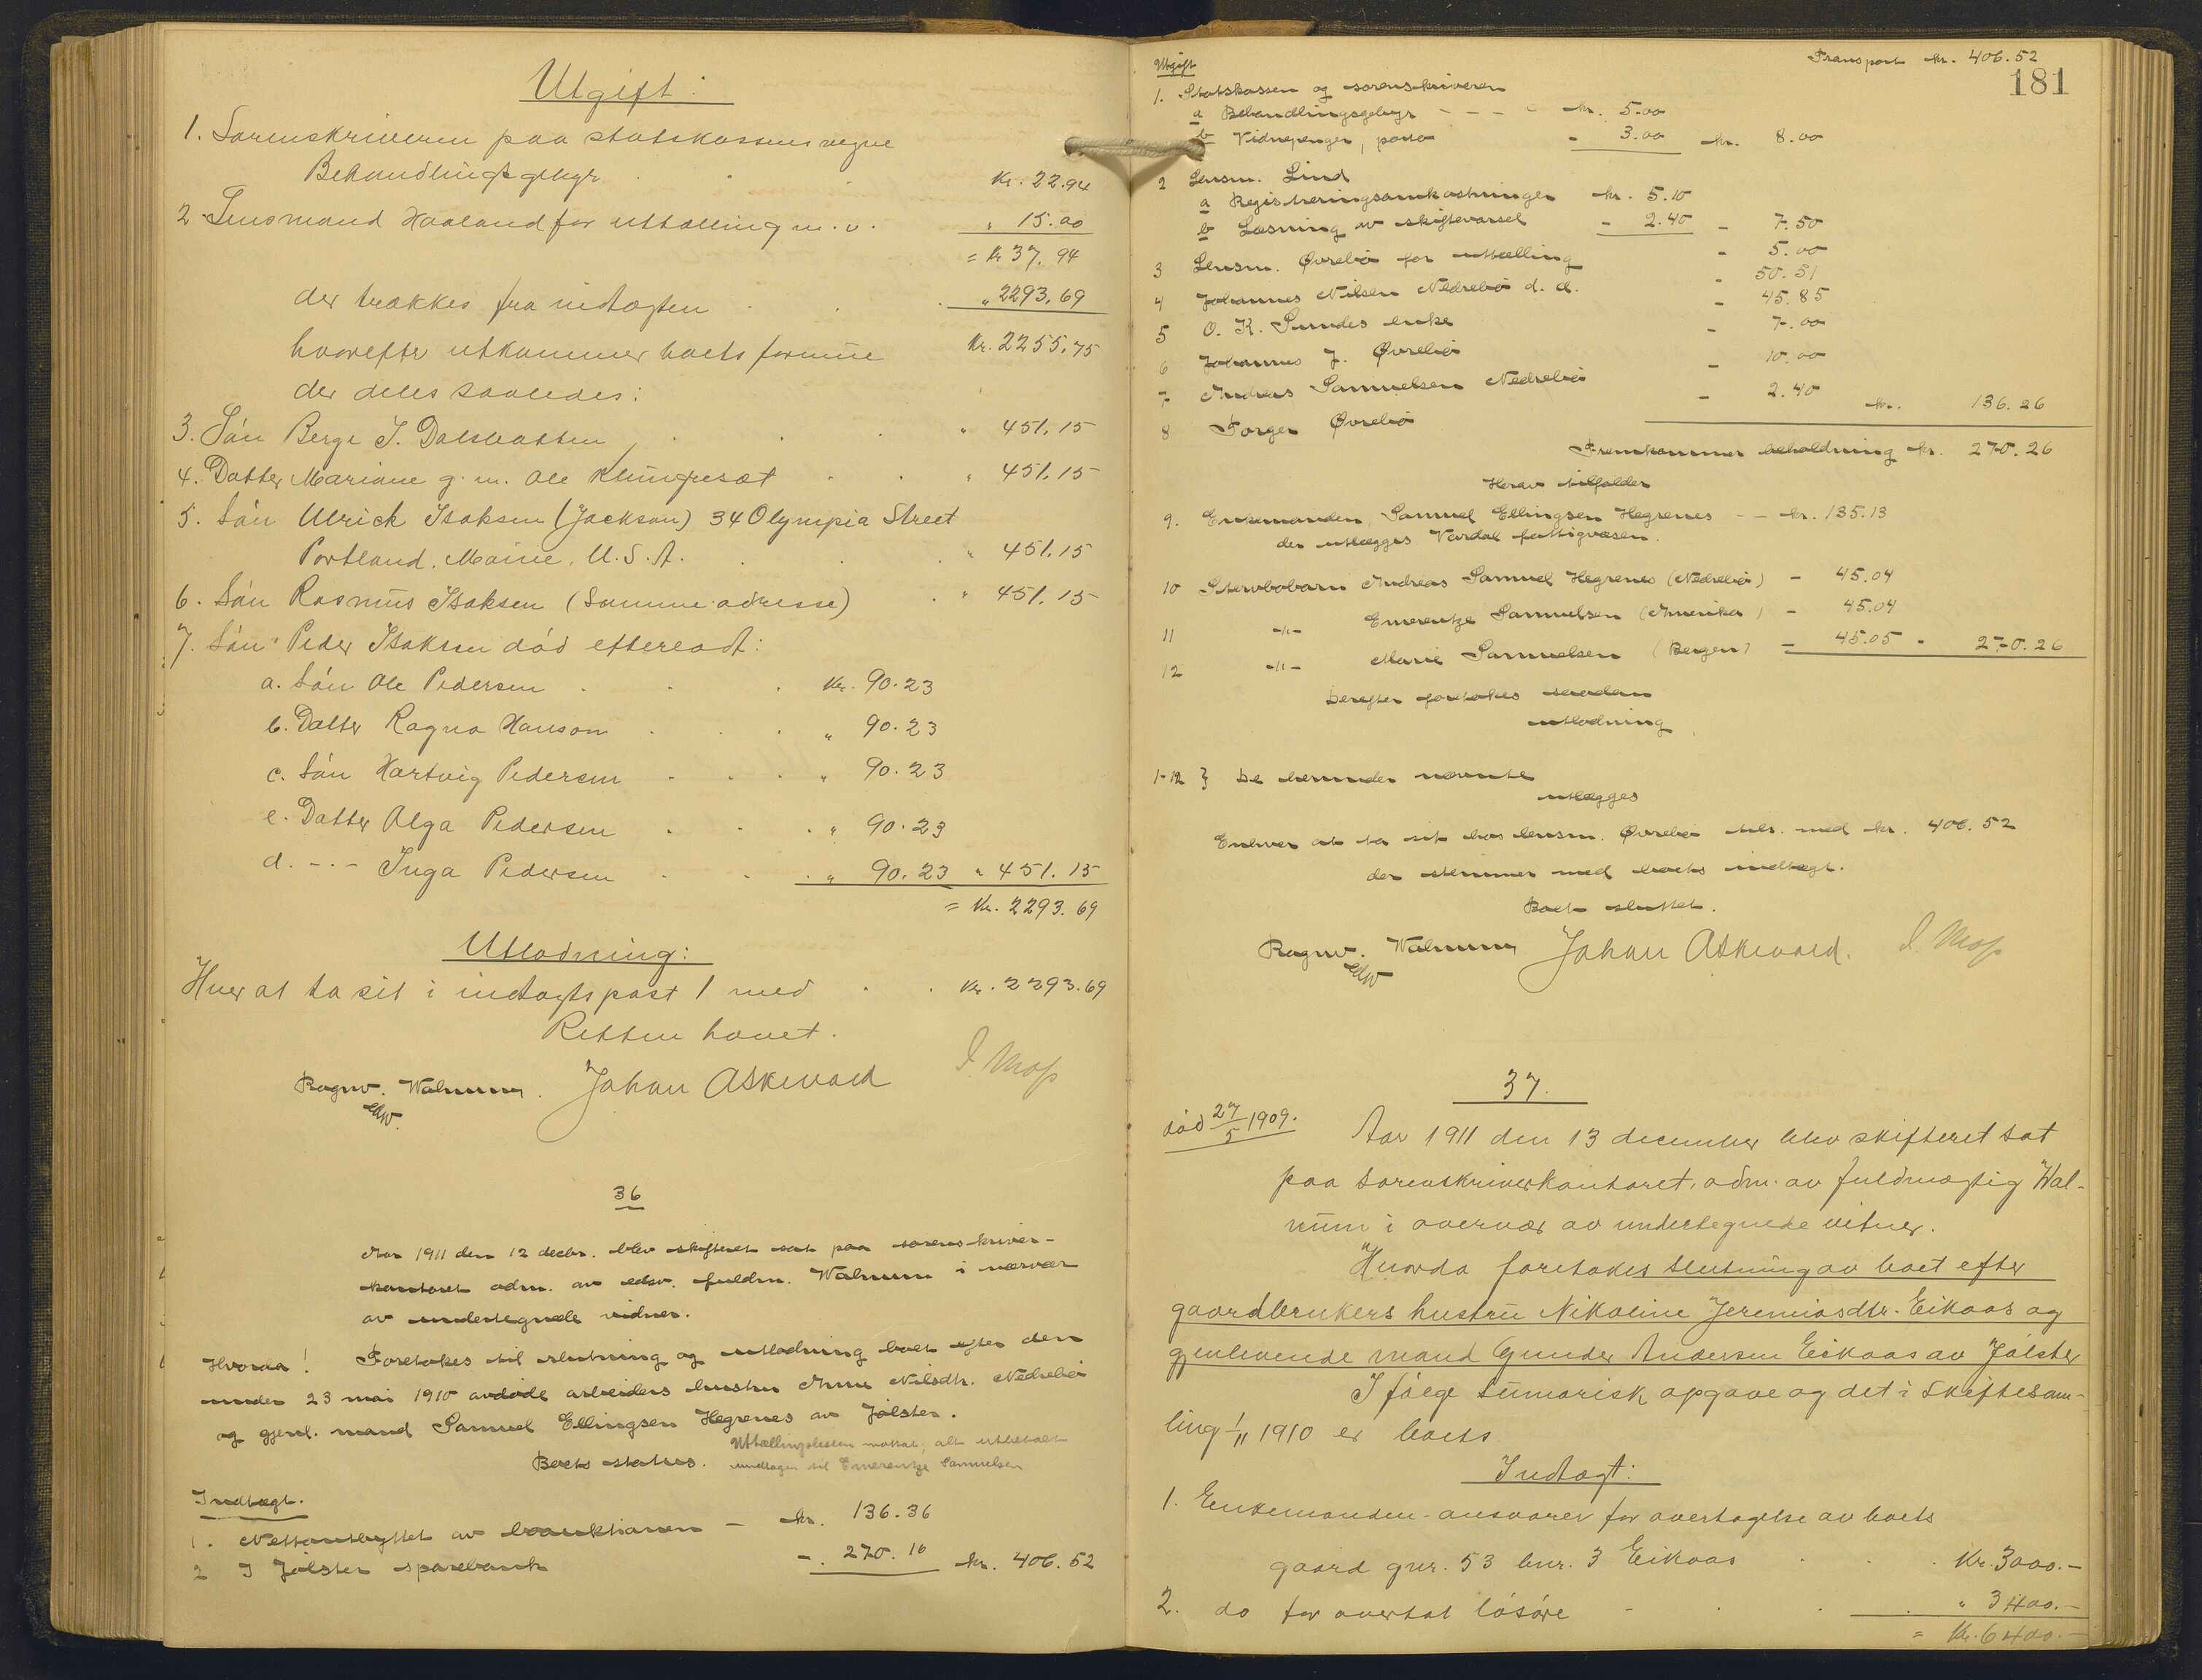 Utgift:
1. Sorenskriveren paa statskassens vegne
Behandlingsgebyr . . Kr. 22.94
2 Lensmand Haaland for uttælling m. v. " 15.00
= Kr 37.94
der trækkes fra indtægten . . . " 2293.69
hvorefter utkommer boets formue Kr. 2255.75
der deles saaledes:
3. Søn Berge I. Dalsbotten . . . " 451.15
4. Datter Mariane g. m. Ole Klungresæt . . " 451.15
5. Søn Ulrick Isaksen (Jackson) 34 Olympia Street
Portland. Maine. U. S. A. . . . " 451.15
6. Søn Rasmus Isaksen (Samme adresse) . " 451.15
7. Søn Peder Isaksen død efterladt:
a. Søn Ole Pedersen . . . Kr. 90.23
b. Datter Ragna Hanson . . . " 90.23
c. Søn Hartvig Pedersen . . . " 90.23
e. Datter Olga Pedersen . . . " 90.23
d. -.- Inga Pedersen . . . " 90.23 " 451.15
= Kr. 2293.69
Utlodning:
Hver at ta sit i indtægtspost 1 med . . Kr. 2293.69
Retten hævet.
Ragnv. Walnum. Johan Askevold I. Moss
edsv.
36
Aar 1911 den 12 decbr. blev skifteret sat paa sorenskriver-
kontoret adm. av edsv. fuldm. Walnum i nærvær
av undertegnede vidner.
Hvorda! Foretokes til slutning og utlodning boet efter den
under 23 mai 1910 avdøde arbeiders hustru Anne Nilsdtr. Nedrebø
og gjenl. mand Samuel Ellingsen Hegrenes av Jølster.
Boets status. Uttællingslisten mottat, alt utbetalt
undtagen til Emerentze Samuelsen
Indtægt.
1. Nettoutbyttet av boauktionen - kr. 136.36
2 I Jølster sparebank -. 270.16 kr. 406.52
181
Transport kr. 406.52
Utgift
1. Statskassen og sorenskriveren
a Behandlingsgebyr - - - - kr. 5.00
b Vidnepenger, porto - 3.00 kr. 8.00
2 Lensm. Lind
a Registreringsomkostninger kr. 5.10
b Læsning av skiftevarsel - 2.40 - 7.50
3 Lensm. Øvrebø for uttælling - 5.00
4 Johannes Nilsen Nedrebø d. æ. - 50.51
5 O. K. Sundes enke - 45.85
6 Johannes J. Øvrebø - 7.00
7 Andreas Samuelsen Nedrebø - 10.00
8 Torger Øvrebø - 2.40 kr. 136.26
Fremkommer beholdning kr. 270.26
Herav tilfalder
9. Enkemanden, Samuel Ellingsen Hegrenes - - kr. 135.13
der utlægges Vardal fattigvæsen.
10 Stervbobarn Andreas Samuel Hegrenes (Nedrebø) - 45.04
11 -"- Emerentze Samuelsen (Amerika) - 45.04
12 -"- Marie Samuelsen (Bergen) - 45.05 - 270.26
Derefter foretokes saadan
utlodning
1-12 } De herunder nævnte
utlægges
Enhver at ta sit hos lensm. Øvrebø tils. med kr. 406.52
der stemmer med boets indtægt.
Boet sluttet.
Ragnv. Walnum Johan Askevold. I. Moss
edsv
37.
død 27/5 1909.
Aar 1911 den 13 december blev skifteret sat
paa Sorenskriverkontoret, adm. av fuldmægtig Wal-
num i overvær av undertegnede vitner.
Hvorda foretokes slutning av boet efter
gaardbrukers hustru Nikoline Jeremiasdtr. Eikaas og
gjenlevende mand Gunder Andersen Eikaas av Jølster
Ifølge sumarisk opgave og det i skiftesam-
ling 1/11 1910 er boets
Indtægt:
1. Enkemanden ansvarer for overtagelse av boets
gaard gnr. 53 bnr. 3 Eikaas . . . Kr. 3000.-
2. do for overtat løsøre - . . . " 3400.-
= Kr. 6400.-